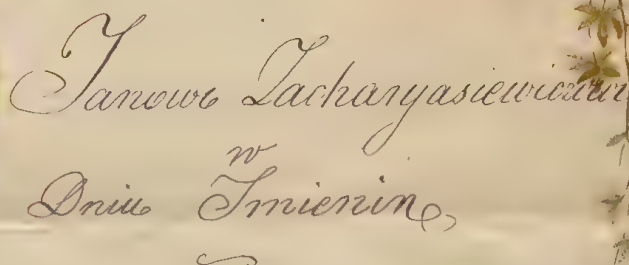 Janowi Zacharyasiewiczowi
w
Dniu Imienin,